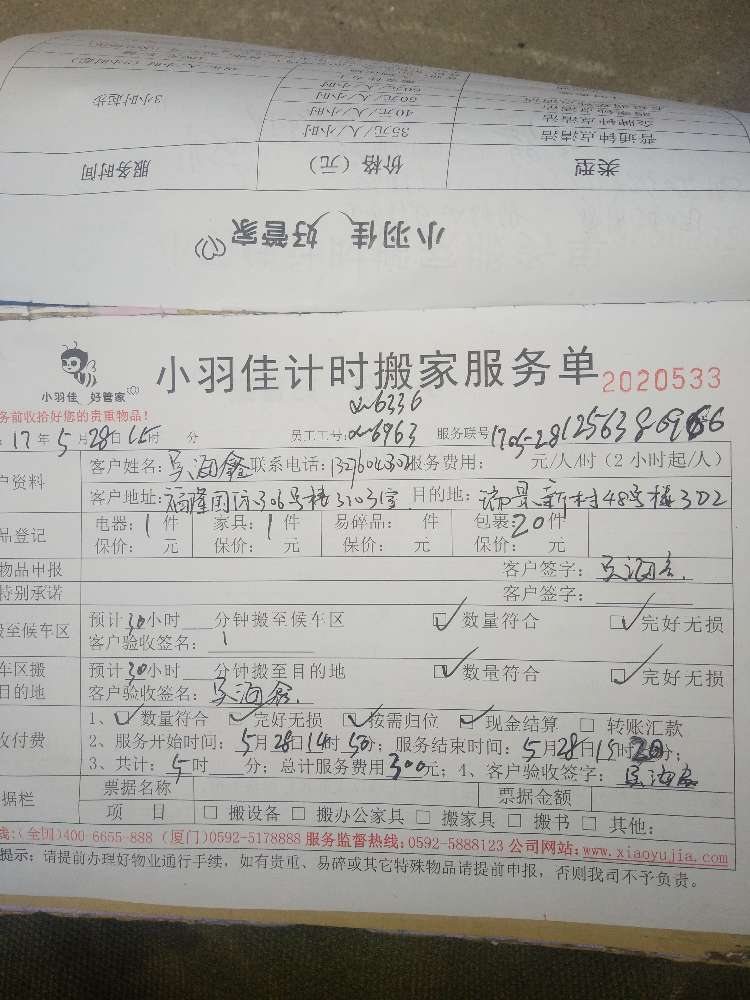 小羽佳 好管家
类型 价格（元） 服务时间
普通钟点清洁 35元/人/小时 3小时起步
金牌钟点清洁 40元/人/小时
50元/人/小时
60元/人/小时
小羽佳 好管家
小羽佳计时搬家服务单 2020533
务前收拾好您的贵重物品！
17年5月28日15时 分 员工工号：6336 6963 服务联号
户资料 客户姓名：吴海鑫 联系电话： 服务费用： 元/人/时（2小时起/人）
客户地址：福隆国际306号楼3103室 目的地：瑞景新村48号楼302
品登记 电器：1件 家具：1件 易碎品： 件 包裹：20件
保价： 元 保价： 元 保价： 元 保价： 元
物品申报 客户签字：
特别承诺 客户签字：
搬至候车区 预计30小时 分钟搬至候车区 数量符合 完好无损
客户验收签名：
车区搬 预计30小时 分钟搬至目的地 数量符合 完好无损
目的地 客户验收签名：吴海鑫
1、数量符合 完好无损 按需归位 现金结算 转账汇款
收付费 2、服务开始时间：5月28日14时50分；服务结束时间：5月28日15时20分；
3、共计：5时 分；总计服务费用300元；4、客户验收签字：
据栏 票据名称 票据金额
项 目 搬设备 搬办公家具 搬家具 搬书 其他：
线：（全国）400-6655-888（厦门）0592-5178888 服务监督热线：0592-5888123 公司网站：www.xiaoyujia.com
提示：请提前办理好物业通行手续，如有贵重、易碎或其它特殊物品请提前申报，否则我司不予负责。